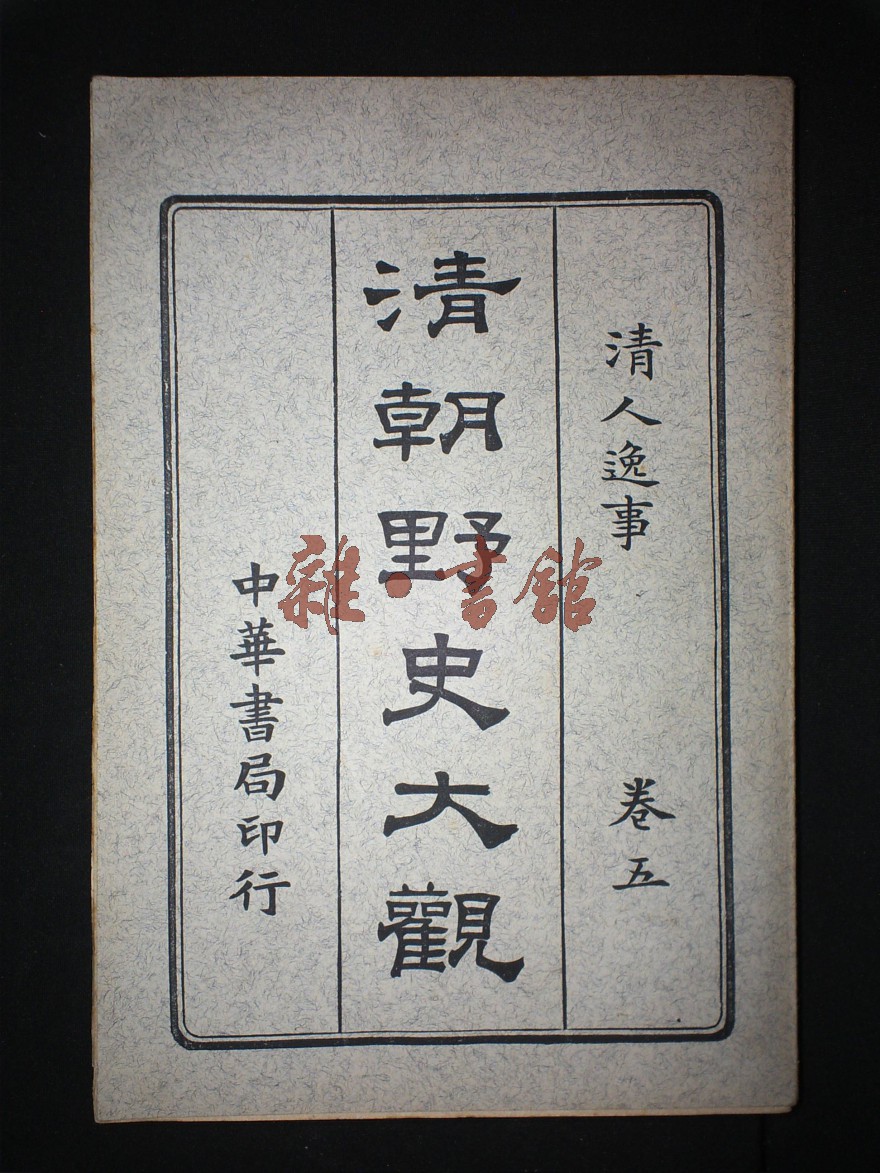 清人逸事 卷五
清朝野史大觀
中華書局印行
雜·書館